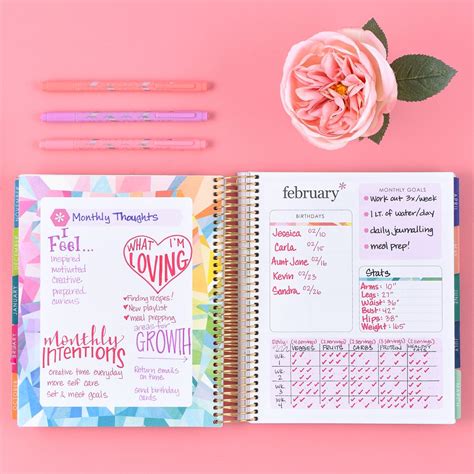 Monthly Thoughts
I
Feel...
Inspired
Motivated
Creative
prepared
curious
WHAT I'M
LOVING
Finding recipes!
New playlist
meal prepping
Monthly
INTENTIONS
creative time everyday
more self care
Set & meet goals
areas for
GROWTH
Return emails
on time
Send birthday
cards
february*
BIRTHDAYS
Jessica 02/10
Carla 02/15
Aunt Jame 02/16
Kevin 02/23
Sandra 02/26
MONTHLY GOALS
Work out 3x/week
1 LT. of water/day
daily journalling
meal prep!
Stats
Arms: 10"
Legs: 27"
Waist: 36"
Bust: 42"
Hips: 38"
Weight: 165
VEGGIES FRUITS CARBS PROTEIN
WK 1
WK 2
WK 3
WK 4
JANUARY